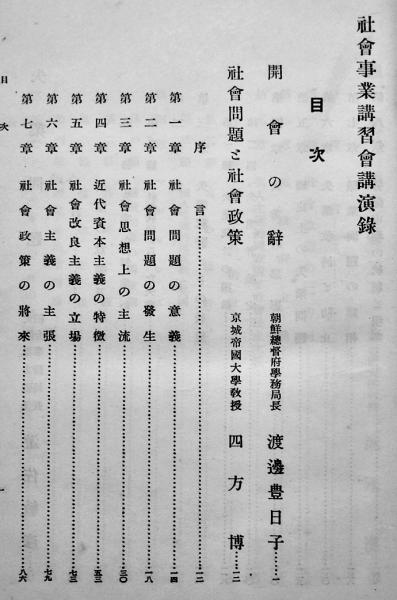 社會事業講習會講演錄
目次
開會の辭 朝鮮總督府學務局長 渡邊豊日子……一
社會問題と社會政策 京城帝國大學敎授 四方博……一二
序言……一二
第一章 社會問題の意義……一四
第二章 社會問題の發生……一八
第三章 社會思想上の主流……三〇
第四章 近代資本主義の特徵……五三
第五章 社會改良主義の立場……七三
第六章 社會主義の主張……七九
第七章 社會政策の將來……八六
目次
一